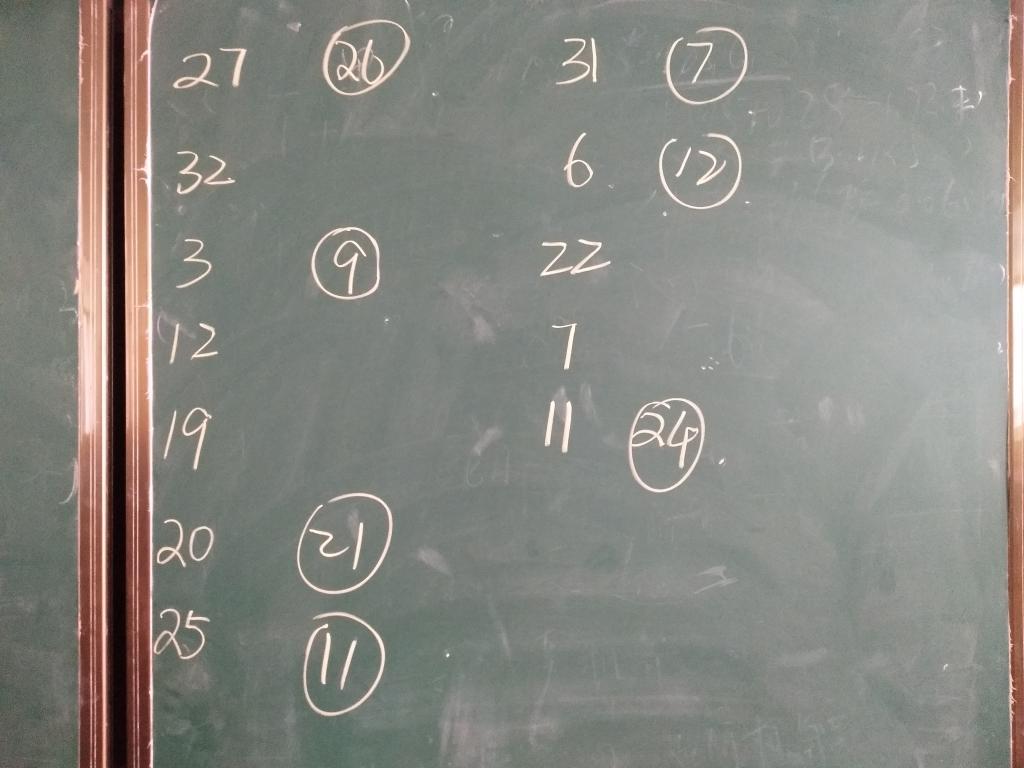 27 26 31 7
32 6 12
3 9 22
12 7
19 11 24
20 21
25 11